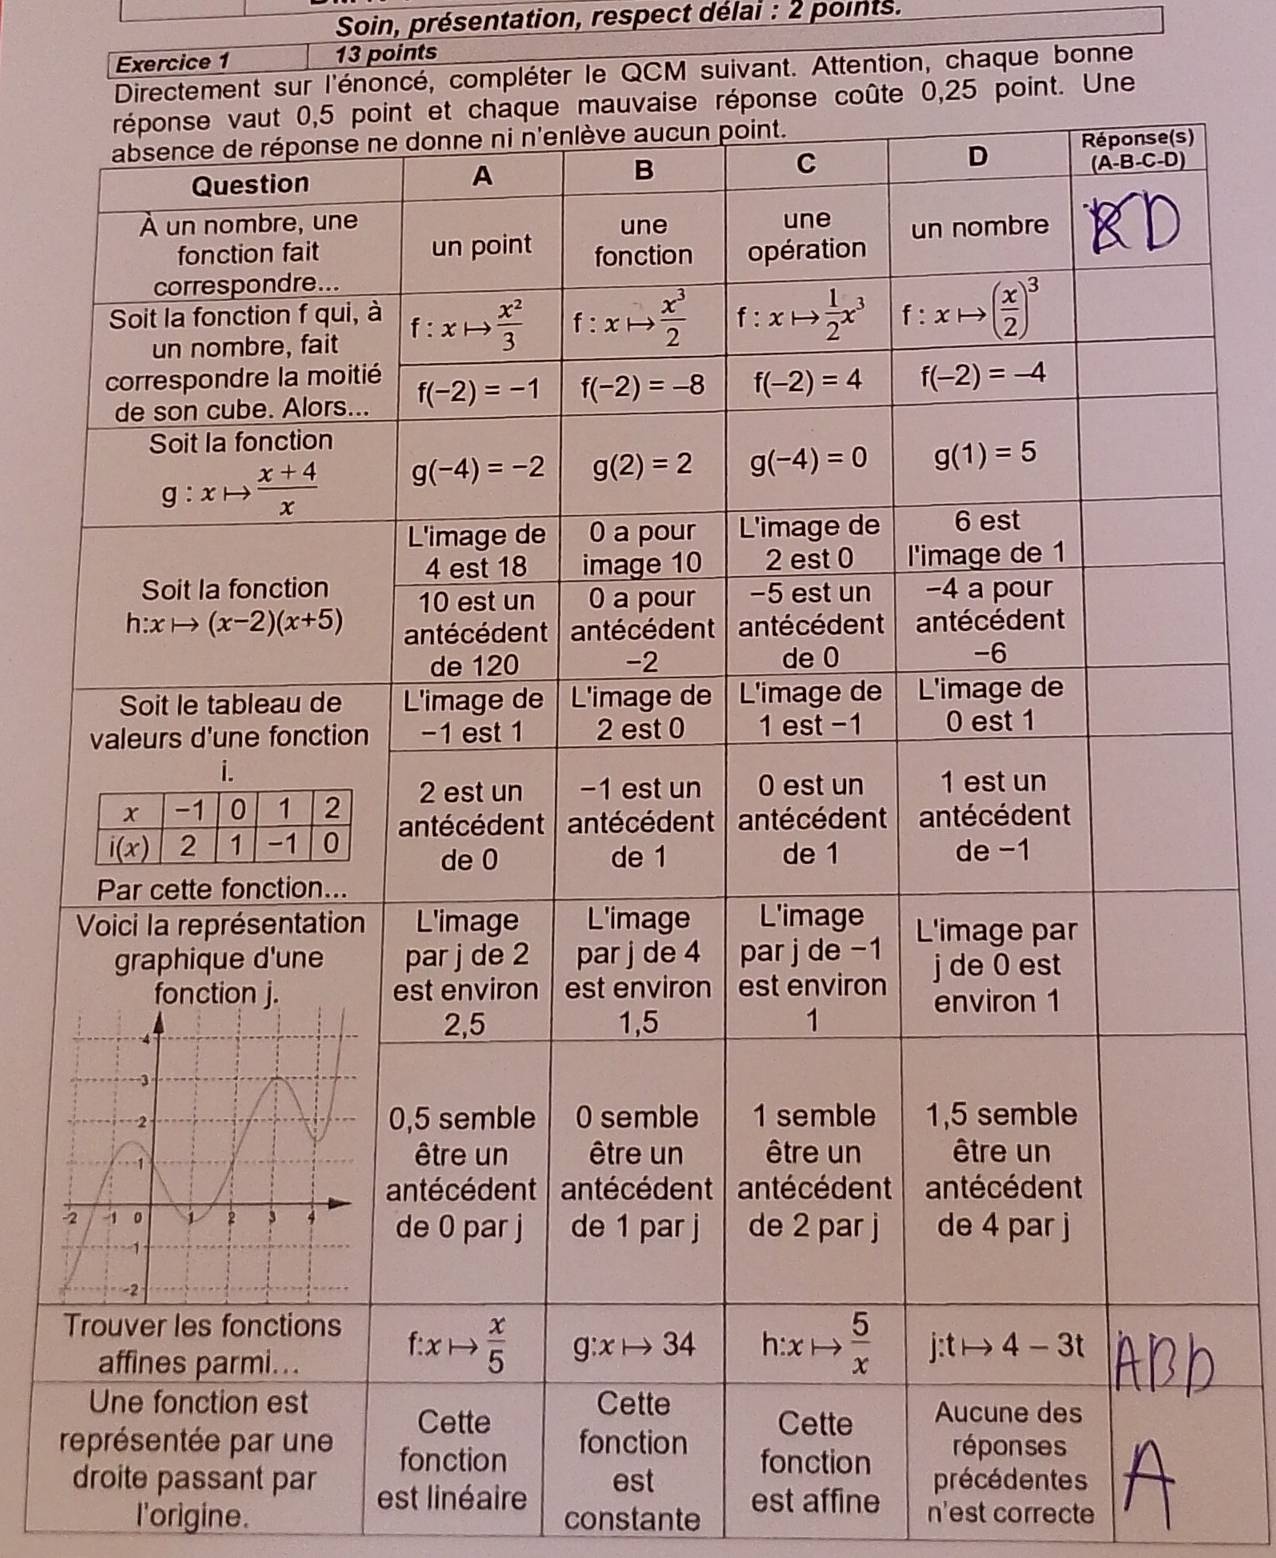 Soin, présentation, respect délai : 2 points.
Exercice 1 13 points
Directement sur l'énoncé, compléter le QCM suivant. Attention, chaque bonne
réponse vaut 0,5 point et chaque mauvaise réponse coûte 0,25 point. Une
absence de réponse ne donne ni n'enlève aucun point.
Question A B C D Réponse(s)
(A-B-C-D)
À un nombre, une
fonction fait
correspondre...
un point
une
fonction
une
opération
un nombre
D
Soit la fonction f qui, à
un nombre, fait
correspondre la moitié
de son cube. Alors...
f : x ↦ x²/3
f : x ↦ x³/2
f : x ↦ 1/2 x³
f : x ↦ (x/2)³
f(−2) = −1
f(−2) = −8
f(−2) = 4
f(−2) = −4
Soit la fonction
g : x ↦ (x + 4)/x
g(−4) = −2
g(2) = 2
g(−4) = 0
g(1) = 5
Soit la fonction
h:x ↦ (x−2)(x+5)
L'image de
4 est 18
0 a pour
image 10
L'image de
2 est 0
6 est
l'image de 1
10 est un
antécédent
de 120
0 a pour
antécédent
−2
−5 est un
antécédent
de 0
−4 a pour
antécédent
−6
Soit le tableau de
valeurs d'une fonction
i.
x −1 0 1 2
i(x) 2 1 −1 0
Par cette fonction...
L'image de
−1 est 1
L'image de
2 est 0
L'image de
1 est −1
L'image de
0 est 1
2 est un
antécédent
de 0
−1 est un
antécédent
de 1
0 est un
antécédent
de 1
1 est un
antécédent
de −1
Voici la représentation
graphique d'une
fonction j.
4
3
2
1
-2 -1 0 1 2 3 4
-1
-2
L'image
par j de 2
est environ
2,5
L'image
par j de 4
est environ
1,5
L'image
par j de −1
est environ
1
L'image par
j de 0 est
environ 1
0,5 semble
être un
antécédent
de 0 par j
0 semble
être un
antécédent
de 1 par j
1 semble
être un
antécédent
de 2 par j
1,5 semble
être un
antécédent
de 4 par j
Trouver les fonctions
affines parmi...
f:x ↦ x/5
g:x ↦ 34
h:x ↦ 5/x
j:t ↦ 4 − 3t
ABD
Une fonction est
représentée par une
droite passant par
l'origine.
Cette
fonction
est linéaire
Cette
fonction
est
constante
Cette
fonction
est affine
Aucune des
réponses
précédentes
n'est correcte
A